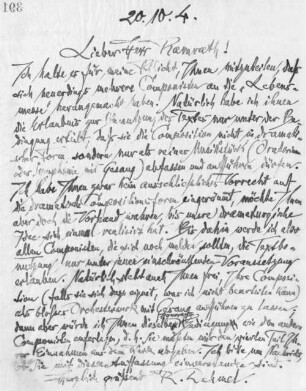 103
20.10.4.
Lieber Herr Ramrath!
Ich halte es für meine Pflicht, Ihnen mitzuteilen, daß
sich neuerdings mehrere Componisten an die „Lebens-
messe" herangemacht haben. Natürlich habe ich ihnen
die Erlaubnis zur Benutzung des Textes nur unter der Be-
dingung erteilt, daß sie die Composition nicht in dramati-
scher Form sondern nur als reines Musikstück (Oratorium
oder Symphonie mit Gesang) abfassen und aufführen dürfen.
Ich habe Ihnen zwar kein ausschließliches Vorrecht auf
die dramatische Compositionsform eingeräumt, möchte Ihnen
aber doch die Vorhand wahren, bis unsre dramaturgische
Idee sich einmal realisiert hat. Bis dahin werde ich also
allen Componisten, die sich noch melden sollten, die Textbe-
nutzung nur unter jener einschränkenden Voraussetzung
erlauben. Natürlich steht es auch Ihnen frei, Ihre Composi-
tion (falls sie sich dazu eignet, was ich nicht beurteilen kann)
als bloßes Orchesterwerk mit Gesang aufführen zu lassen;
dann aber würde ich Ihnen dieselben Bedingungen wie den andern
Componisten auferlegen, d. h. Sie müßten mir den vierten Teil Ihrer
Einnahmen aus dem Werk abgeben. Ich bitte um Nachricht,
ob Sie mit dieser Auffassung einverstanden sind.
Herzlich grüßend R. Dehmel.